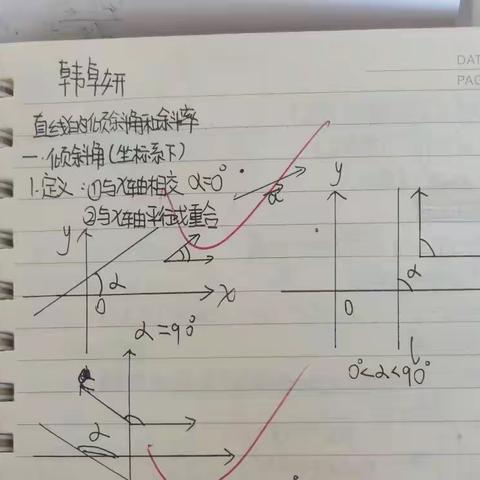 DAT
PAG
韩卓妍
直线的倾斜角和斜率
一.倾斜角(坐标系下)
1.定义:①与x轴相交 α=0°
②与x轴平行或重合
y
α
0
x
α=90°
a
y
α
0
l
0°<α<90°
α